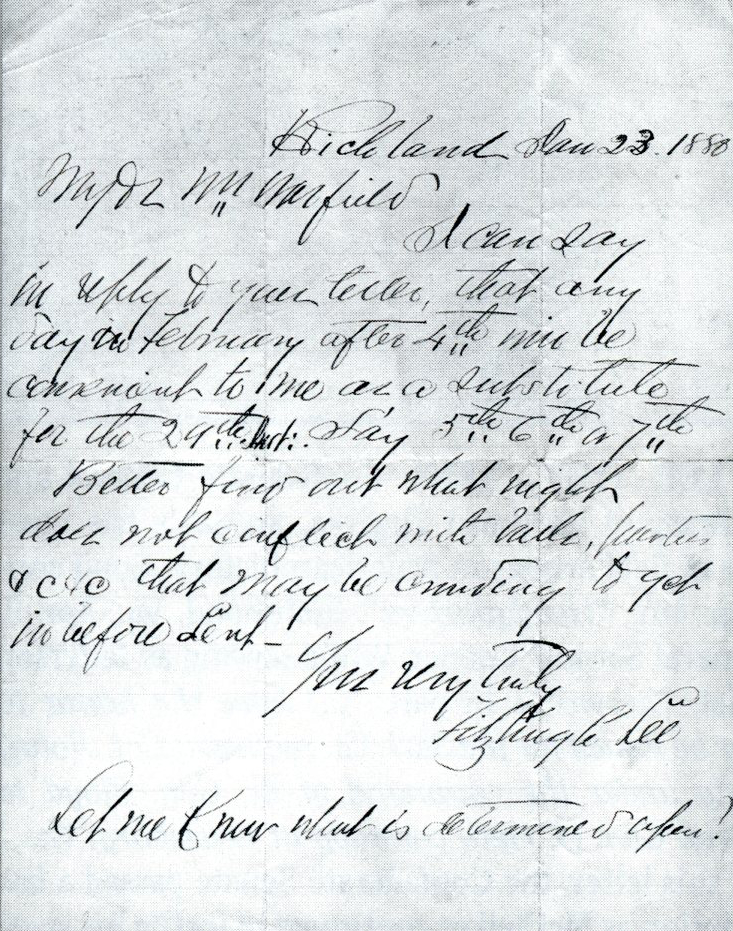 Richland Jan 23. 1880
My Dr Mr Warfield
I can say
in reply to your letter, that any
day in February after 4th will be
convenient to me as a substitute
for the 29th inst: Say 5th 6th or 7th
Better find out what night
does not conflict with balls, parties
& c&c that may be crowding to get
in before Lent -
Yrs very truly
Fitzhugh Lee
Let me know what is determined upon!